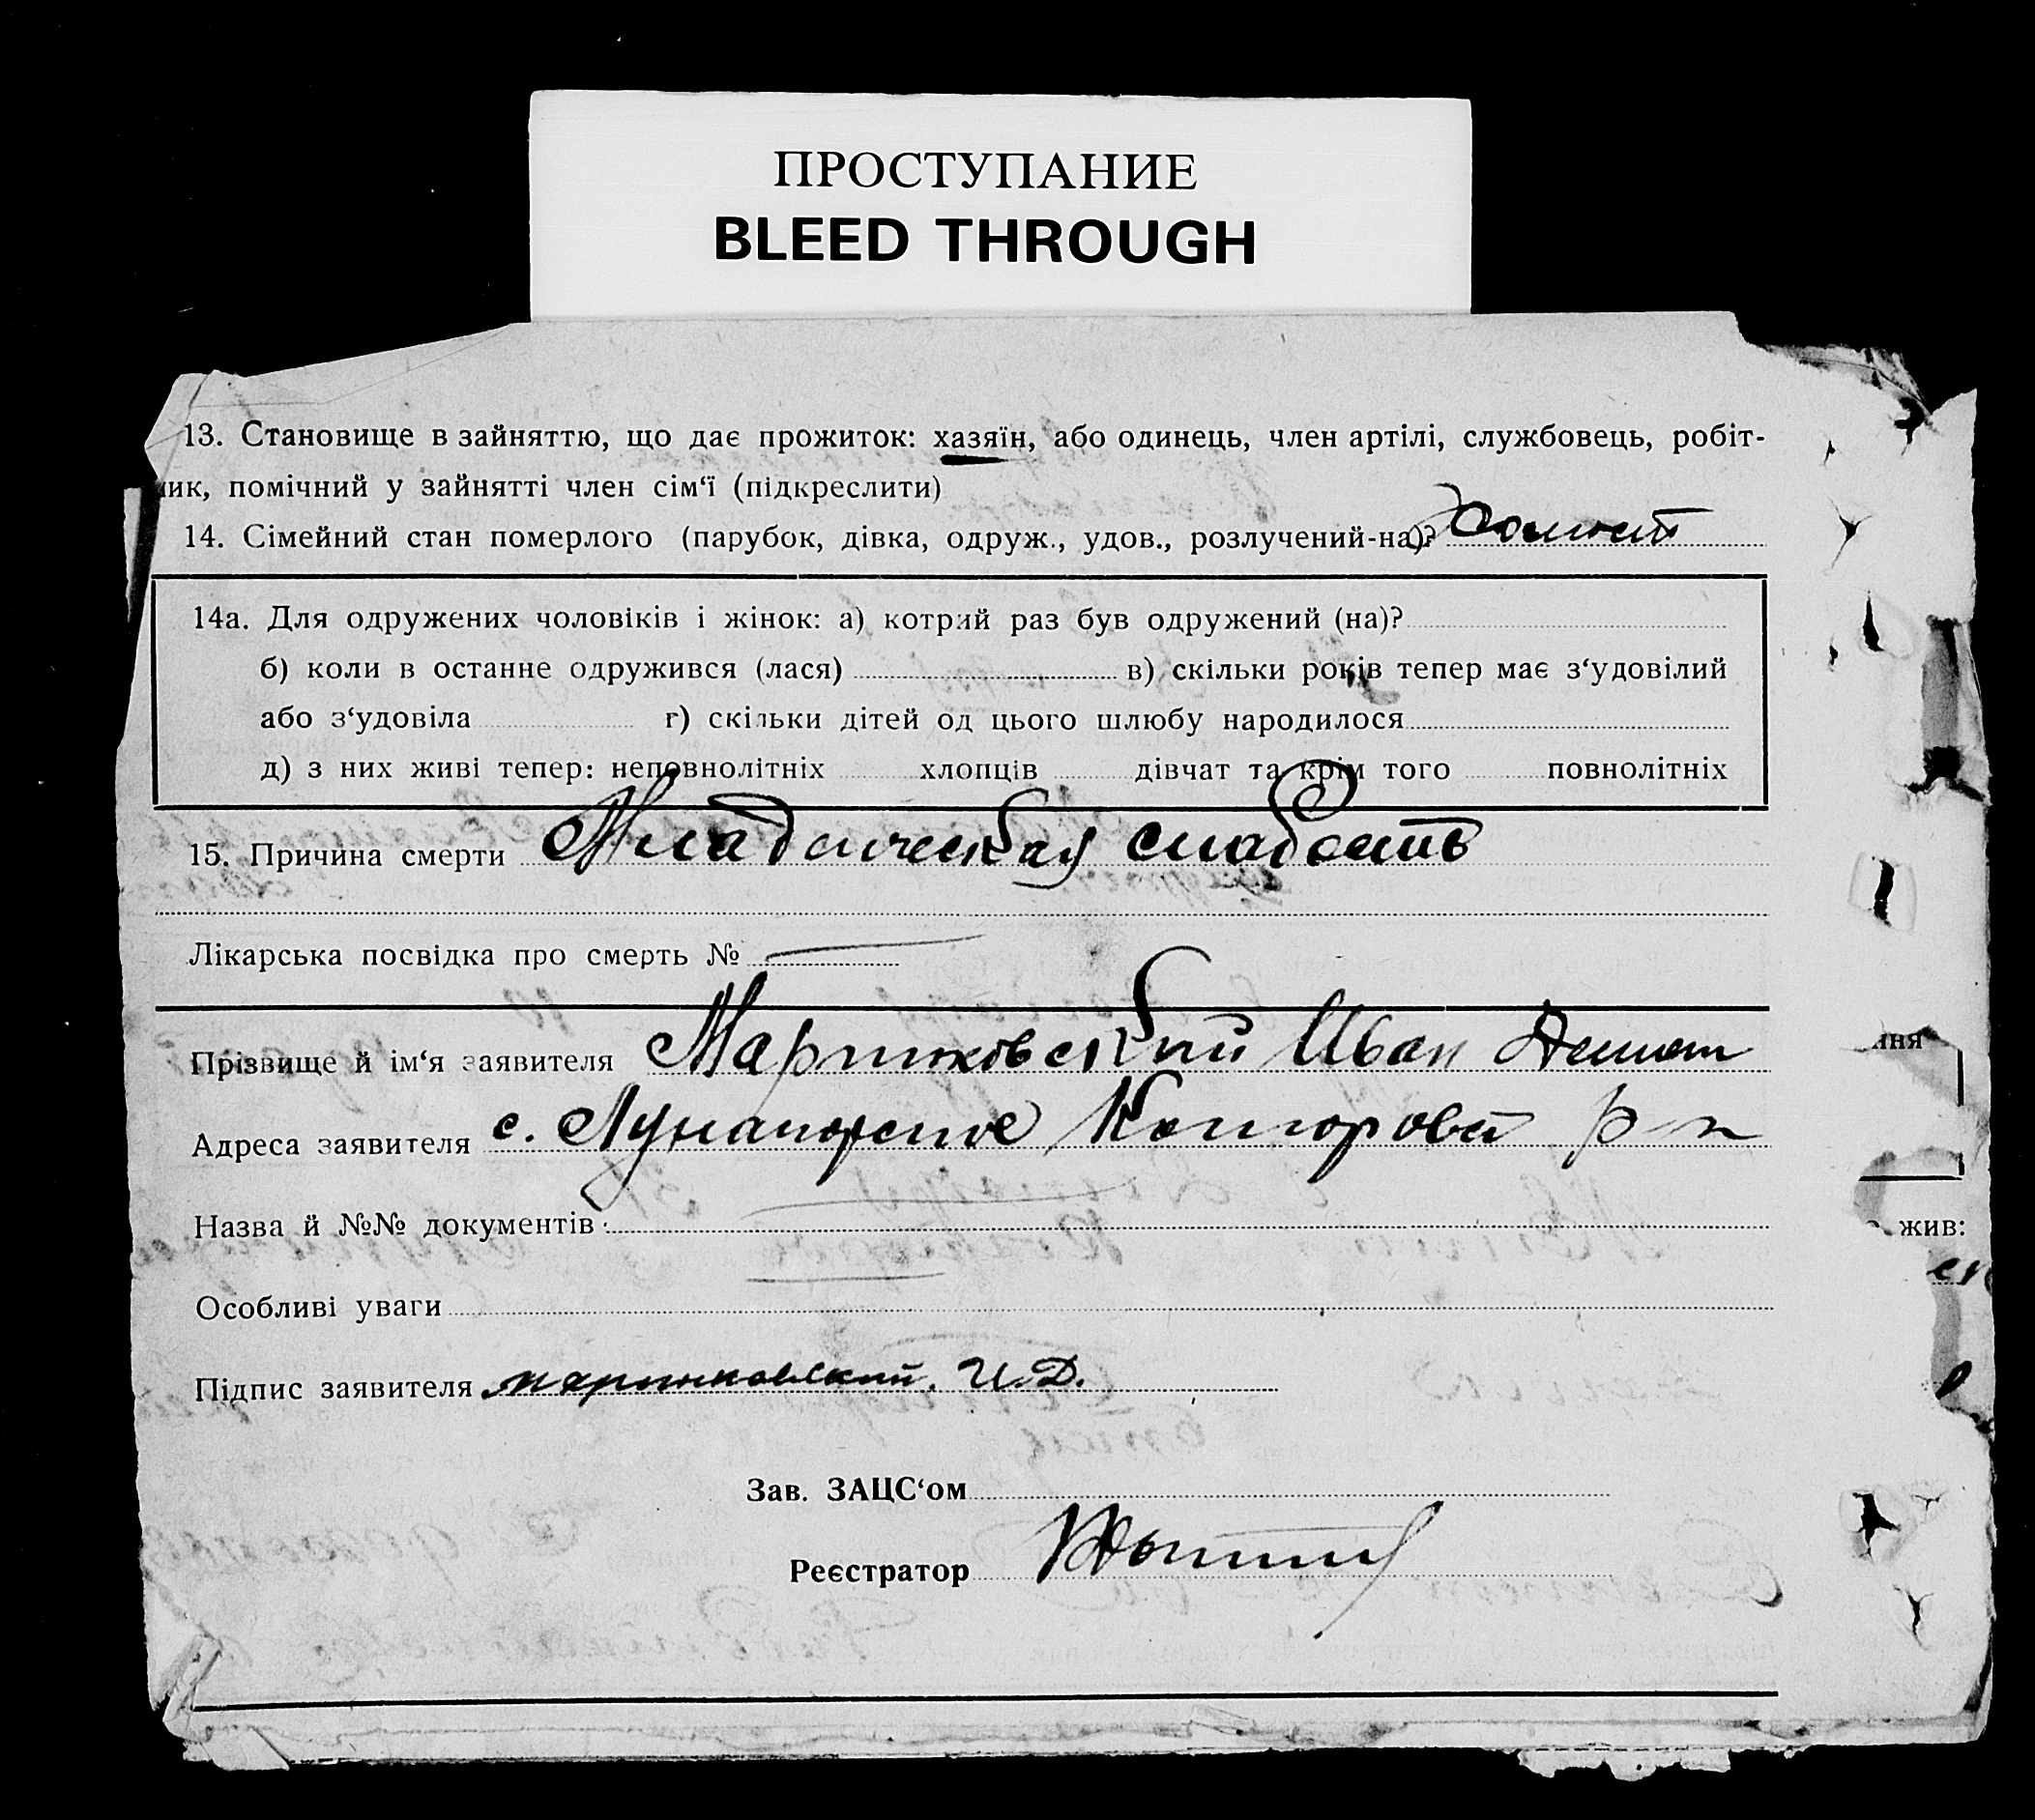 ПРОСТУПАНИЕ
BLEED THROUGH
13. Становище в зайняттю, що дає прожиток: хазяїн, або одинець, член артілі, службовець, робіт-
ик, помічний у зайнятті член сім‘ї (підкреслити)
14. Сімейний стан померлого (парубок, дівка, одруж., удов., розлучений-на)? Холост
14а. Для одружених чоловіків і жінок: а) котрий раз був одружений (на)?
б) коли в останне одружився (лася) в) скільки років тепер має з‘удовілий
або з‘удовіла г) скільки дітей од цього шлюбу народилося
д) з них живі тепер: неповнолітніх хлопців дівчат та крім того повнолітніх
15. Причина смерти Младенческая слабость
Лікарська посвідка про смерть №
Прізвище й ім‘я заявителя Маринковский Иван
Адреса заявителя с. р-н
Назва й №№ документів
Особливі уваги
Підпис заявителя Маринковский. И.Д.
Зав. ЗАЦС‘ом
Реєстратор
ння
жив: